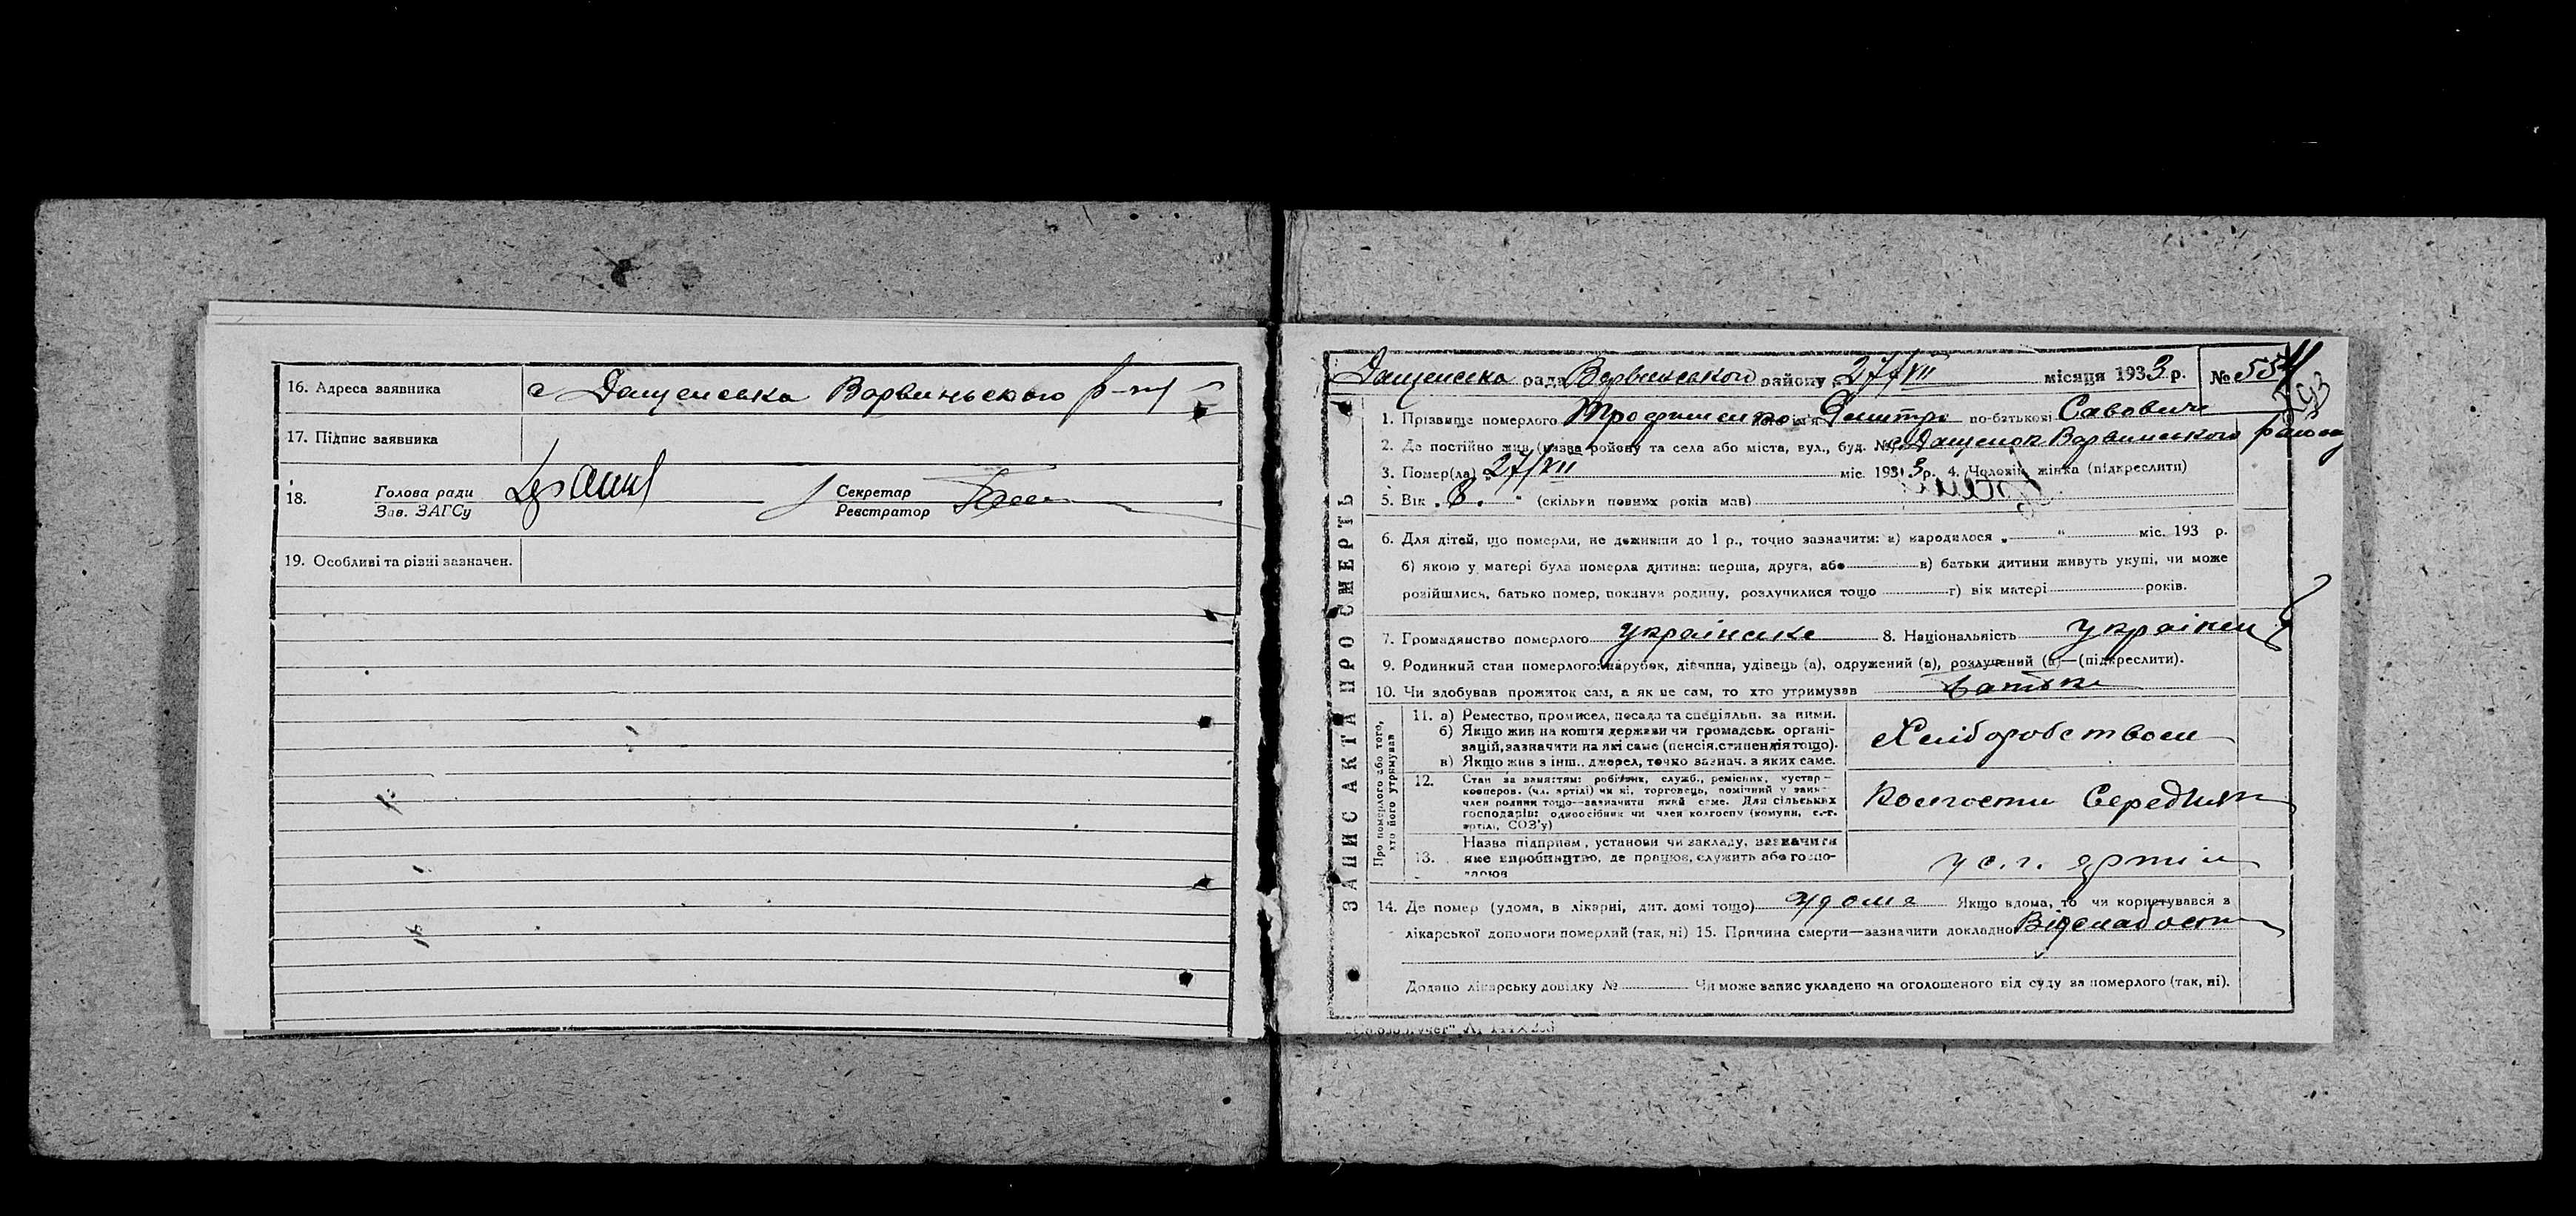 16. Адреса заявника с Дащенська Варвинського р-ну
17. Підпис заявника
18. Голова ради Секретар
Зав. ЗАГСу Реєстратор
19. Особливі та різні зазначен.
ЗАПИС АКТА ПРО СМЕРТЬ
Дащенська рада Варвинського району 27/VII місяця 1933 р. №
1. Прізвище померлого Трофименко ім'я Дмитро по-батькові Савович
2. Де постійно жив (назва району та села або міста, вул., буд. №) с Дащенок Варвинського району
3. Помер(ла) 27/VII міс. 1933 р. 4. Чоловік, жінка (підкреслити)
5. Вік „8“ (скільки повних років мав)
6. Для дітей, що померли, не доживши до 1 р., точно зазначити: а) народилося „ “ міс. 193 р.
б) якою у матері була померла дитина: перша, друга, або в) батьки дитини живуть укупі, чи може
розійшлись, батько помер, покинув родину, розлучилися тощо г) вік матері років.
7. Громадянство померлого українське 8. Національність українець
9. Родинний стан померлого: парубок, дівчина, удівець (а), одружений (а), розлучений (а)—(підкреслити).
10. Чи здобував прожиток сам, а як не сам, то хто утримував батьки
Про померлого або того, хто його утримував
11. а) Ремество, промисел, посада та спеціяльн. за ними.
б) Якщо жив на кошти держави чи громадськ. органі-
зацій, зазначити на які саме (пенсія, стипендія тощо).
в) Якщо жив з інш. джерел, точно зазнач. з яких саме.
Хліборобством
12. Стан за заняттям: робітник, служб., ремісник, кустар-
кооперов. (чл. артілі) чи ні, торговець, помічний у занят.
член родини тощо—зазначити який саме. Для сільських
господарів: одноосібник чи член колгоспу (комуни, с.-г.
артілі, СОЗ'у)
Колгоспн Середняк
13. Назва підприєм., установи чи закладу, зазначити
яке виробництво, де працює, служить або госпо-
дарює
у с.г. артілі
14. Де помер (удома, в лікарні, дит. домі тощо) удома Якщо вдома, то чи користувався з
лікарської допомоги померлий (так, ні) 15. Причина смерти—зазначити докладно Від слабости
Додано лікарську довідку № Чи може запис укладено на оголошеного від суду за померлого (так, ні).